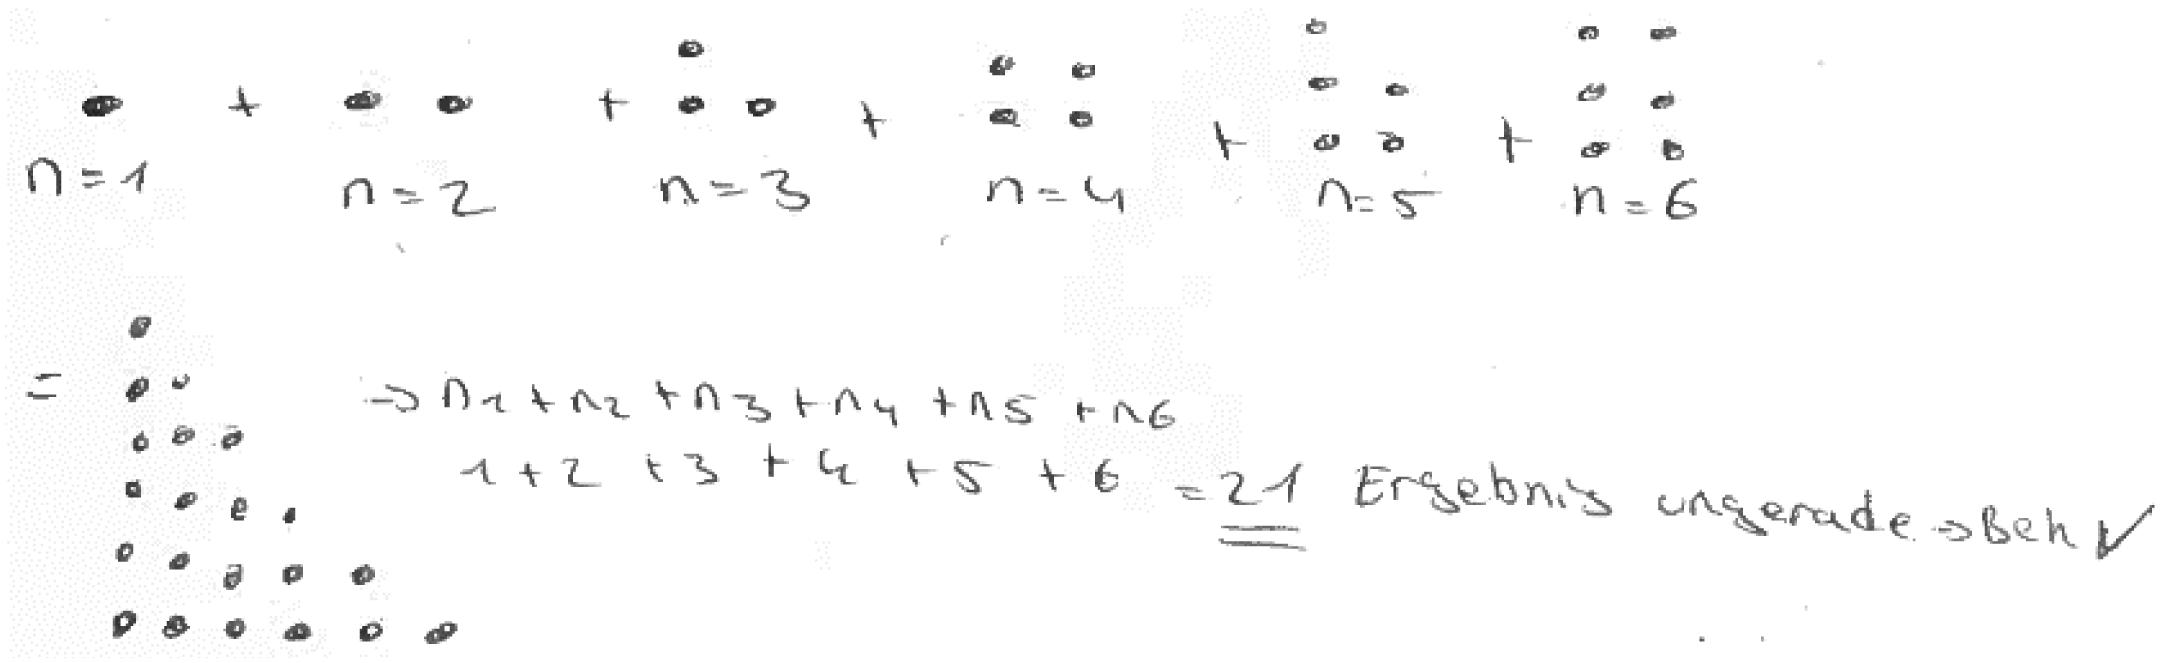 + + + + +
n=1 n=2 n=3 n=4 n=5 n=6
= → n1 + n2 + n3 + n4 + n5 + n6
1 + 2 + 3 + 4 + 5 + 6 = 21 Ergebnis ungerade → Beh ✓